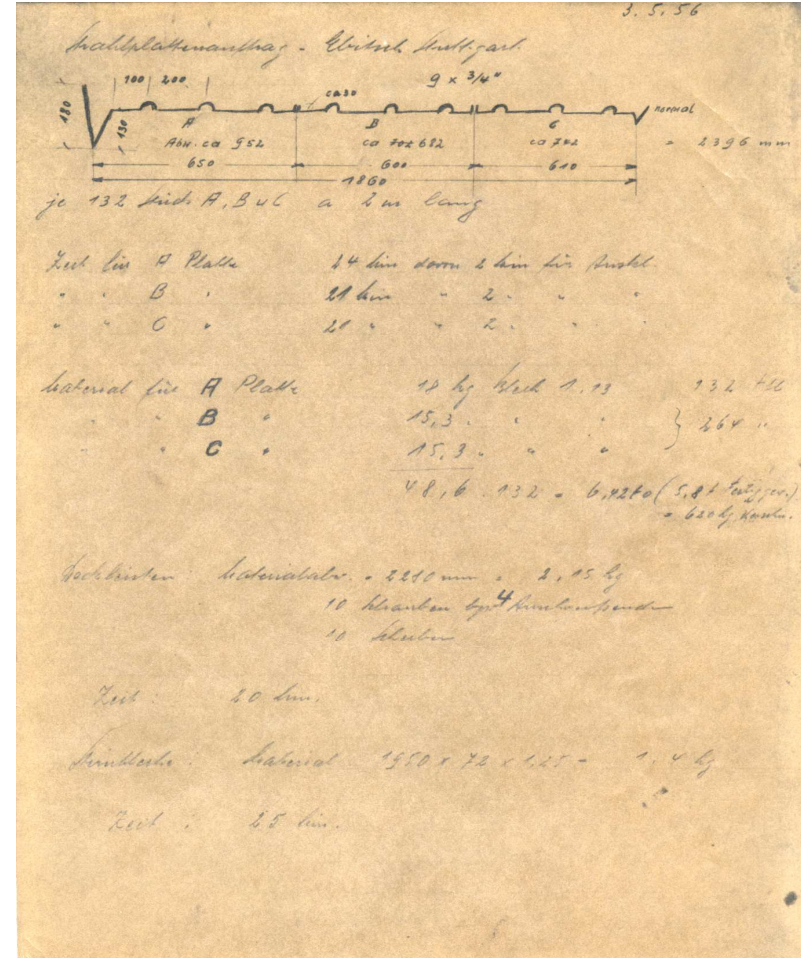 3. 5. 56
Strahlplattenauftrag - Ebitsch Stuttgart.
100 200 9 x 3/4"
180 130 ca 30 normal
A B C
Abw. ca 952 ca 682 ca 742 = 2396 mm
650 600 610
1860
je 132 Stück A, B u C a 2 m lang
Zeit für A Platte 24 Min davon 2 Min für
" " B " 21 Min " 2 " " "
" " C " 21 " " 2 " " "
Material für A Platte 18 kg Blech 1.13 132
" " B " 15,3 " " " } 264 "
" " C " 15,3 " " "
48,6 . 132 = 6,42 to (5,8 t
= 620 kg
Deckleisten: Materialabw. = 2210 mm = 2,15 kg
10 Schrauben 4
10 Scheiben
Zeit: 20 Min.
Material 1950 x 72 x 1,25 = 1.4 kg
Zeit: 25 Min.